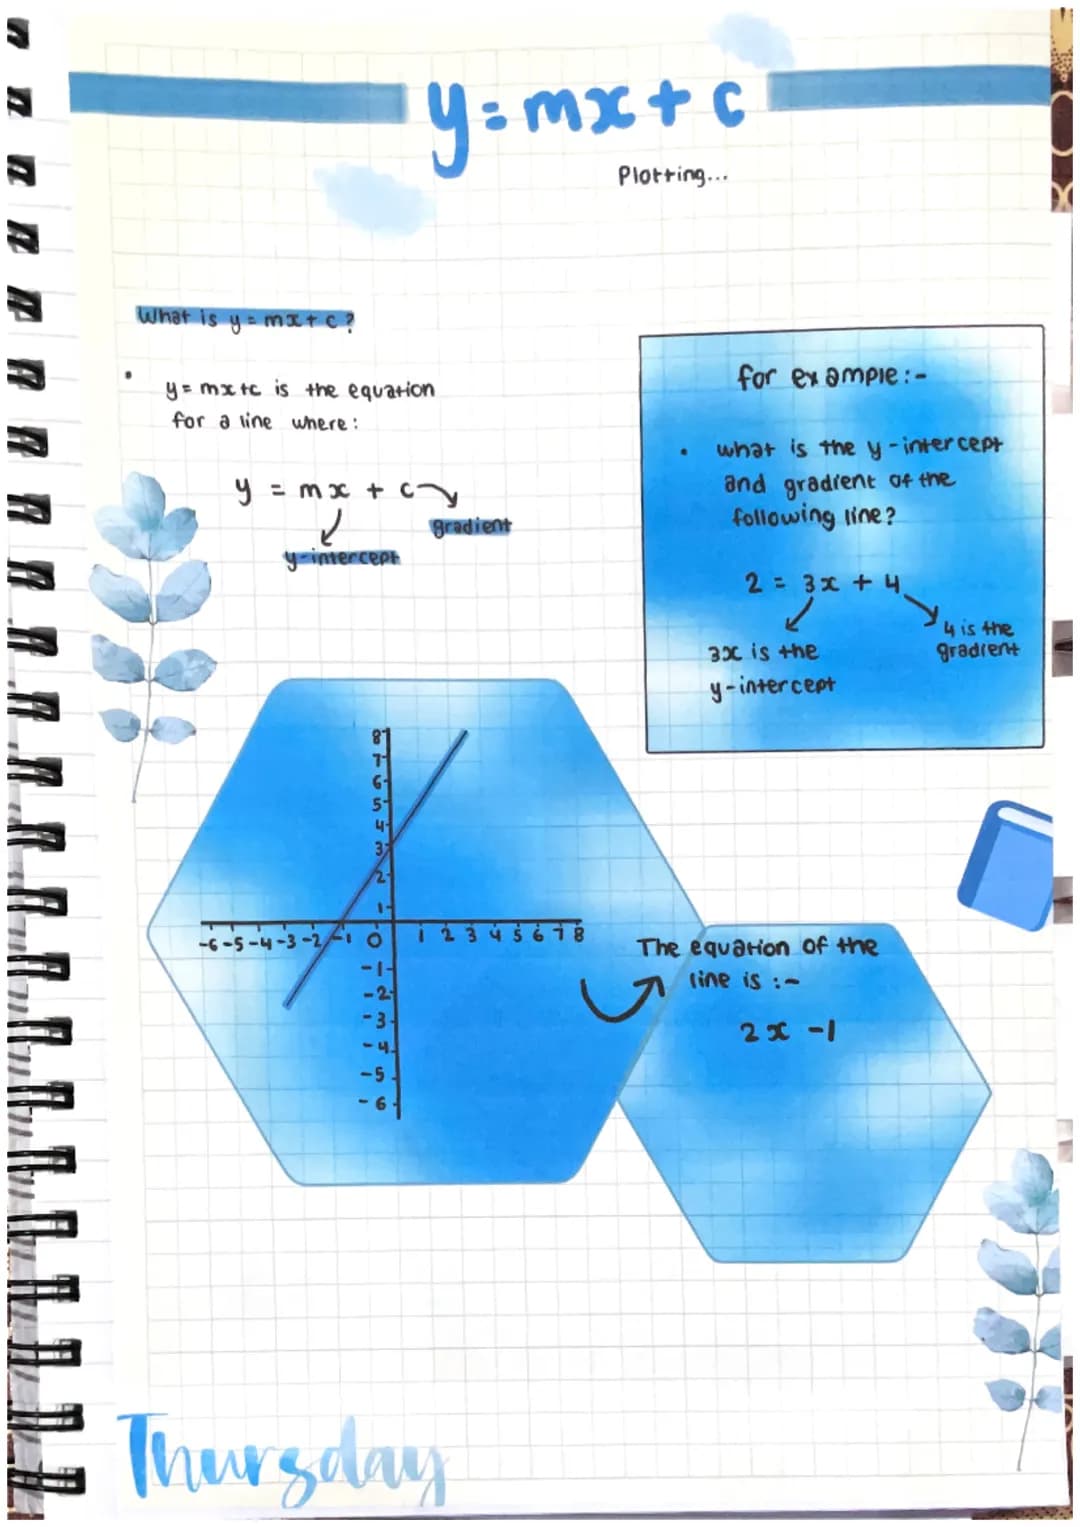 y=mx+c
Plotting...
What is y=mx+c?
• y=mx+c is the equation
for a line where:
y = mx + c
gradient
y-intercept
for example:-
• what is the y-intercept
and gradient of the
following line?
2 = 3x + 4
4 is the
gradient
3x is the
y-intercept
8
7
6
5
4
3
2
1
-6 -5 -4 -3 -2 -1 0 1 2 3 4 5 6 7 8
-1
-2
-3
-4
-5
-6
The equation of the
line is :-
2x -1
Thursday